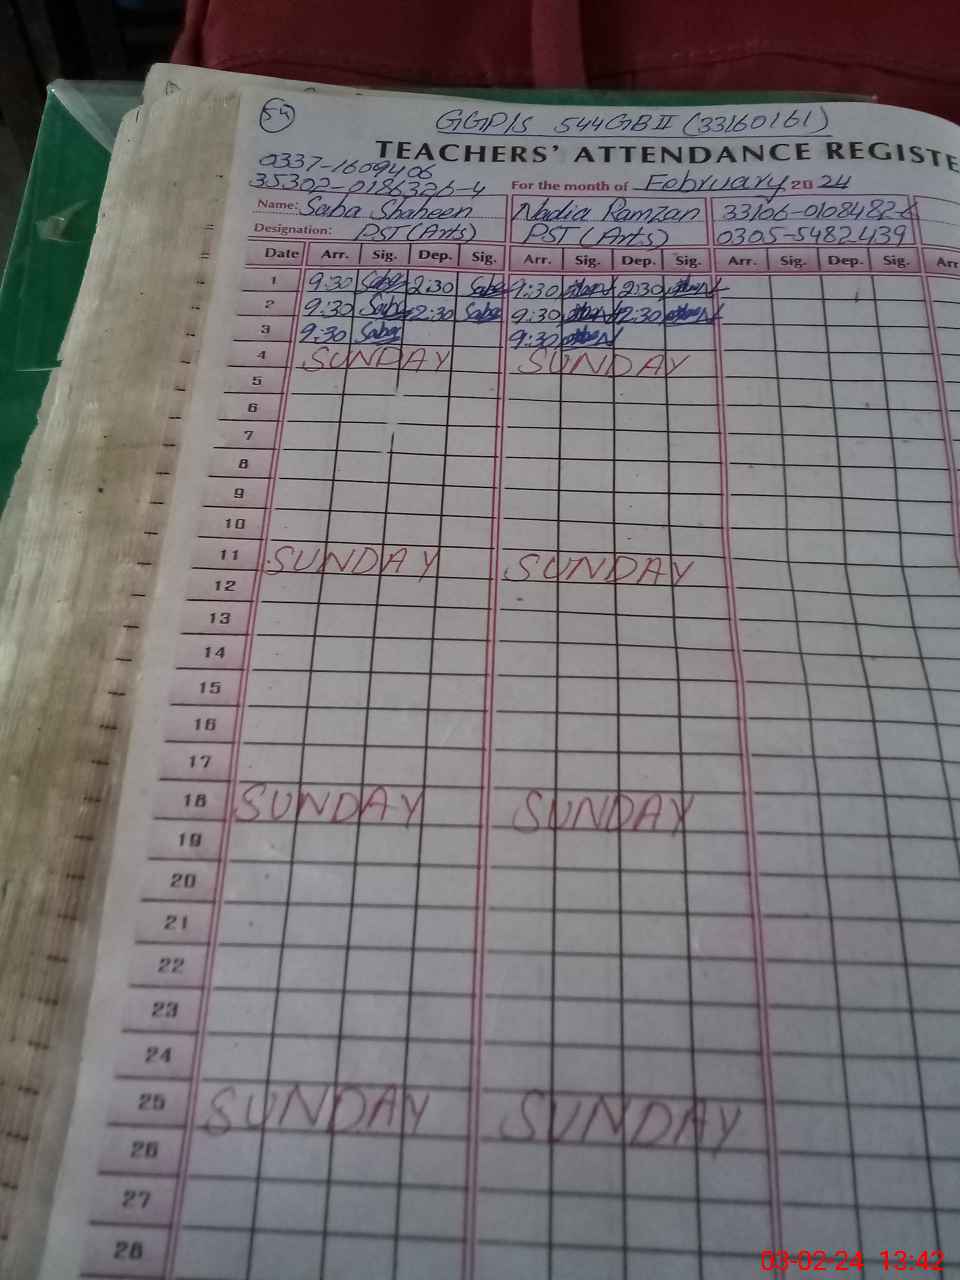 54
GGP/S 544GBII (33160161)
TEACHERS' ATTENDANCE REGISTE
0337-1609406
35302-0186326-4
For the month of February 2024
Name: Saba Shaheen Nadia Ramzan 33106-0108482-8
Designation: PST (Arts) PST (Arts) 0305-5482439
Date Arr. Sig. Dep. Sig. Arr. Sig. Dep. Sig. Arr. Sig. Dep. Sig. Arr
1 9:30 Saba 2:30 Saba 9:30 2:30
2 9:30 Saba 2:30 Saba 9:30 2:30
3 9:30 Saba 9:30
4 SUNDAY SUNDAY
5
6
7
8
9
10
11 SUNDAY SUNDAY
12
13
14
15
16
17
18 SUNDAY SUNDAY
19
20
21
22
23
24
25 SUNDAY SUNDAY
26
27
28
03-02-24 13:42